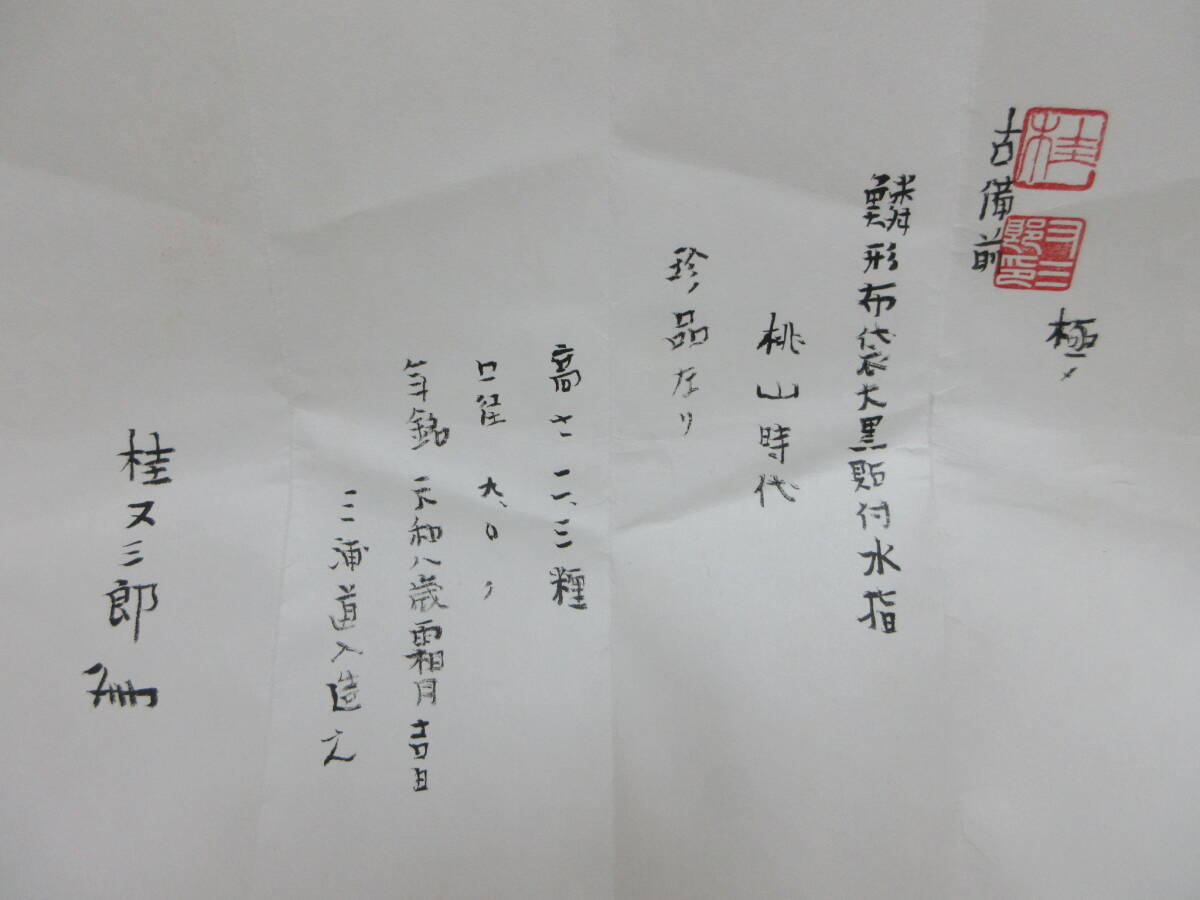 極メ
桂
又三郎印
古備前
鱗形布袋大黒貼付水指
桃山時代
珍ノ品なり
高サ 一一、三糎
口径 九、〇〃
年銘 元和八歳霜月吉日
三浦道入造之
桂又三郎